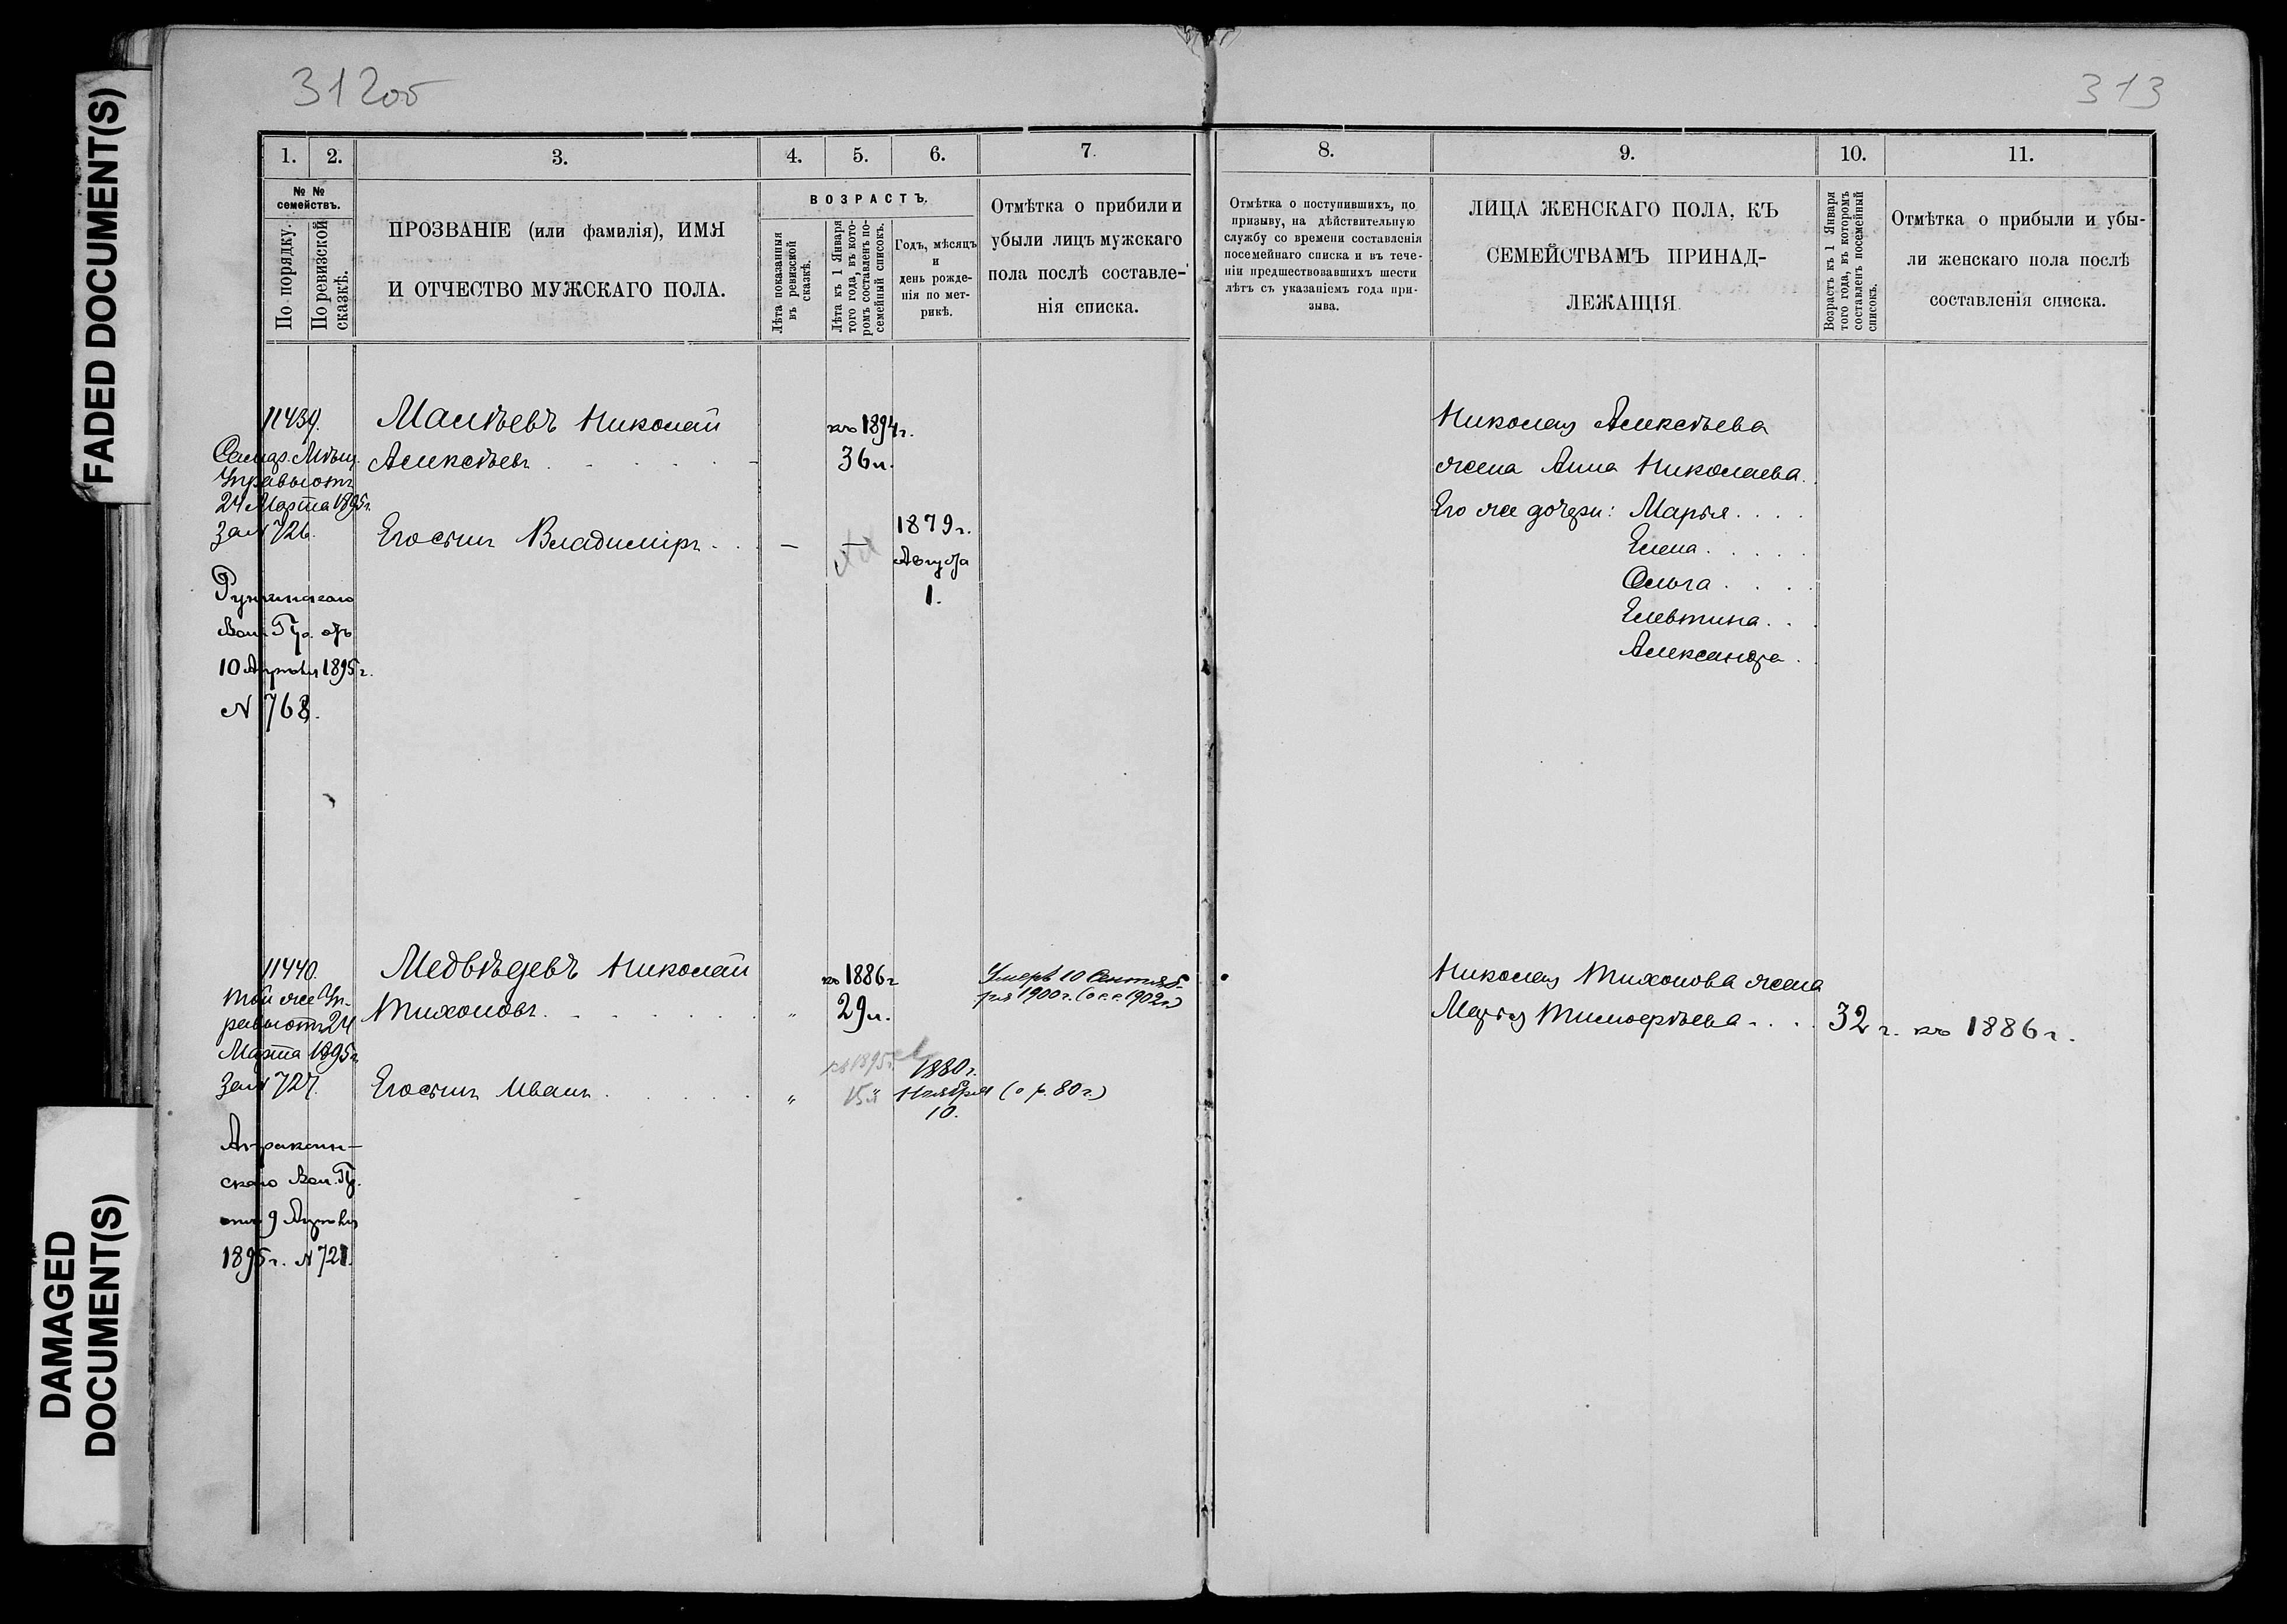 FADED DOCUMENT(S)
DAMAGED
DOCUMENT(S)
312об
313
1.
2.
3.
4.
5.
6.
7.
№ №
семействъ.
По порядку.
По ревизской
сказкѣ.
ПРОЗВАНІЕ (или фамилія), ИМЯ
И ОТЧЕСТВО МУЖСКАГО ПОЛА.
ВОЗРАСТЪ.
Лѣта показанныя
въ ревизской
сказкѣ.
Лѣта къ 1 Января
того года, въ кото-
ромъ составленъ по-
семейный списокъ.
Годъ, мѣсяцъ
и
день рожде-
нія по мет-
рикѣ.
Отмѣтка о прибыли и
убыли лицъ мужскаго
пола послѣ составле-
нія списка.
11439.
Самар. Мѣщ.
Управы отъ
24 Марта 1895 г.
за № 726.
Малѣевъ Николай
Алексѣевъ
къ 1894 г.
36 л.
Его сынъ Владиміръ
1879 г.
Августа
1.
Вол. Пр. отъ
10 Апрѣля 1895 г.
№ 768.
11440.
той же Уп-
равы отъ 24
Марта 1895 г.
за № 727.
Медвѣдевъ Николай
Тихоновъ
къ 1886 г
29 л.
Умеръ 10 Сентяб-
ря 1900 г. (о с.с. 1902 г.)
Его сынъ Иванъ
къ 1895 г.
15 л
1880 г.
Ноября
10.
(о р. 80 г.)
скаго Вол. Пр.
отъ 9 Апрѣля
1895 г. № 721.
8.
9.
10.
11.
Отмѣтка о поступившихъ, по
призыву, на дѣйствительную
службу со времени составленія
посемейнаго списка и въ тече-
ніи предшествовавшихъ шести
лѣтъ съ указаніемъ года при-
зыва.
ЛИЦА ЖЕНСКАГО ПОЛА, КЪ
СЕМЕЙСТВАМЪ ПРИНАД-
ЛЕЖАЩІЯ
Возрастъ къ 1 Января
того года, въ которомъ
составленъ посемейный
списокъ.
Отмѣтка о прибыли и убы-
ли женскаго пола послѣ
составленія списка.
Николая Алексѣева
жена Анна Николаева.
Его же дочери: Марья
Елена
Ольга
Елевтина
Александра
Николая Тихонова жена
Марья Тимофѣева
32 г. къ 1886 г.